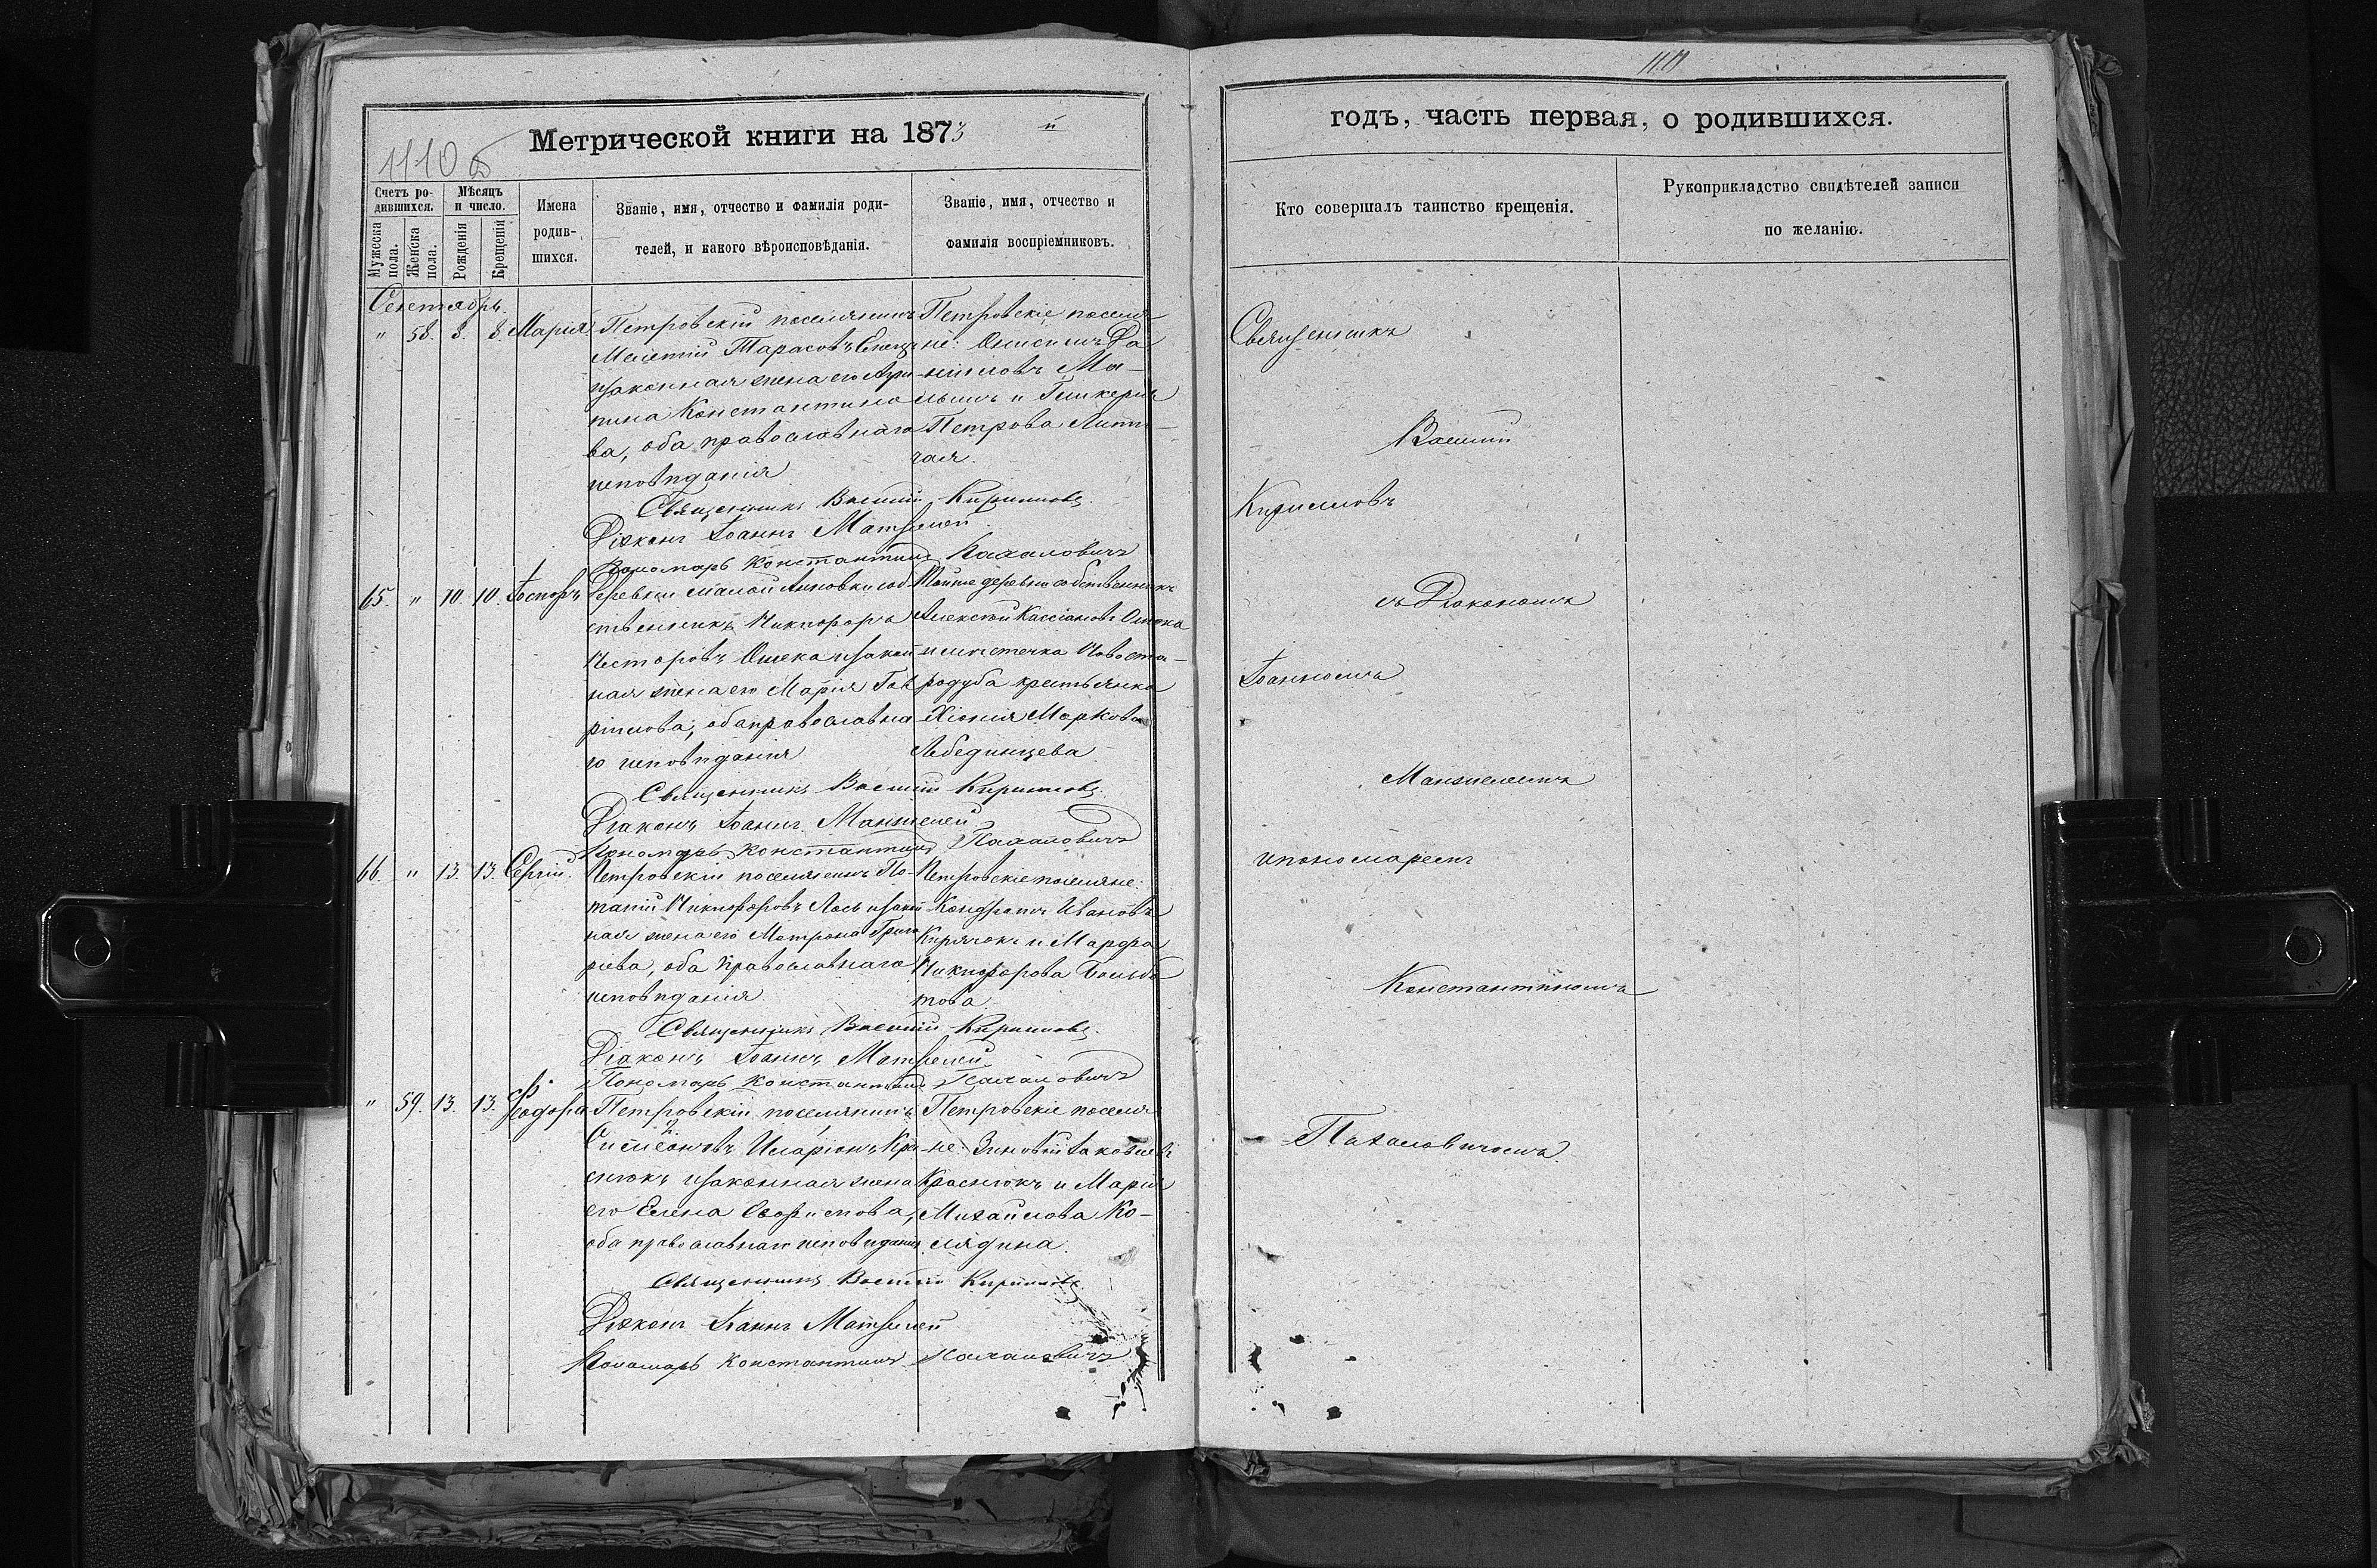 1110 об
Метрической книги на 1873 й
Счетъ ро-
дившихся.
Мѣсяцъ
и число.
Мужеска
пола.
Женска
пола.
Рожденія
Крещенія
Имена
родив-
шихся.
Званіе, имя, отчество и фамилія роди-
телей, и какого вѣроисповѣданія.
Званіе, имя, отчество и
фамилія воспріемниковъ.
Сентябрь.
" 58. 8. 8. Марія
Петровскій поселянинъ
Мелетій Тарасовъ
и законная жена его Агри-
пина Константино
ва, оба православнаго
исповѣданія
Петровскіе поселя-
не: Онисимъ Да
ниловъ Ма-
и Гликерія
Петрова Литви-
чая.
Священникъ Василій Кирилловъ
Діаконъ Іоаннъ
Пономарь Константинъ Пахаловичъ
65. " 10. 10. Несторъ
Деревни Малой Анновки соб
ственникъ Никифоръ
Несторовъ Ошека и закон
ная жена его Марія Гав
ріилова, оба православна
го исповѣданія
Тойже деревни собственникъ
Алексѣй Кассіановъ Ошека
и мѣстечка Новоста-
родуба крестьянка
Хіонія Маркова
Лебединцева
Священникъ Василій Кирилловъ.
Діаконъ Іоаннъ Манжелей
Пономарь Константинъ Пахаловичъ
66. " 13. 13. Сергій.
Петровскій поселянинъ По-
тапій Никифоровъ Лось и закон
ная жена его Матрона Григо
ріева, оба православнаго
исповѣданія
Петровскіе поселяне:
Кондратъ Ивановъ
Кирячокъ и Марфа
Никифорова Больбо
това
Священникъ Василій Кирилловъ.
Діаконъ Іоаннъ
Пономарь Константинъ Пахаловичъ
" 59. 13. 13. Феодора
Петровскій поселянинъ
Симеоновъ Иларіонъ Кра
снюкъ и законная жена
его Елена
оба православнаго исповѣданія
Петровскіе поселя
не: Зиновій Іаковлевъ
Краснюкъ и Марія
Михайлова Ко-
лядина.
Священникъ Василій Кирилловъ
Діаконъ Іоаннъ
Пономарь Константинъ Пахаловичъ
годъ, часть первая, о родившихся.
Кто совершалъ таинство крещенія.
Рукоприкладство свидѣтелей записи
по желанію.
Священникъ
Василій
Кирилловъ
съ Діакономъ
Іоанномъ
Манжелеемъ
и пономаремъ
Константиномъ
Пахаловичемъ.